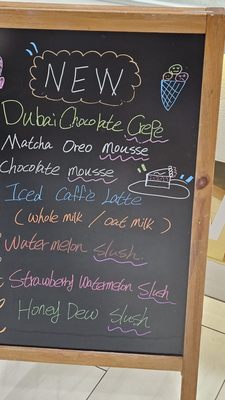 NEW
Dubai Chocolate Crepe
Matcha Oreo mousse
Chocolate mousse
Iced Caffè Latte
( whole milk / oat milk )
Watermelon slush
Strawberry Watermelon Slush
Honey Dew slush